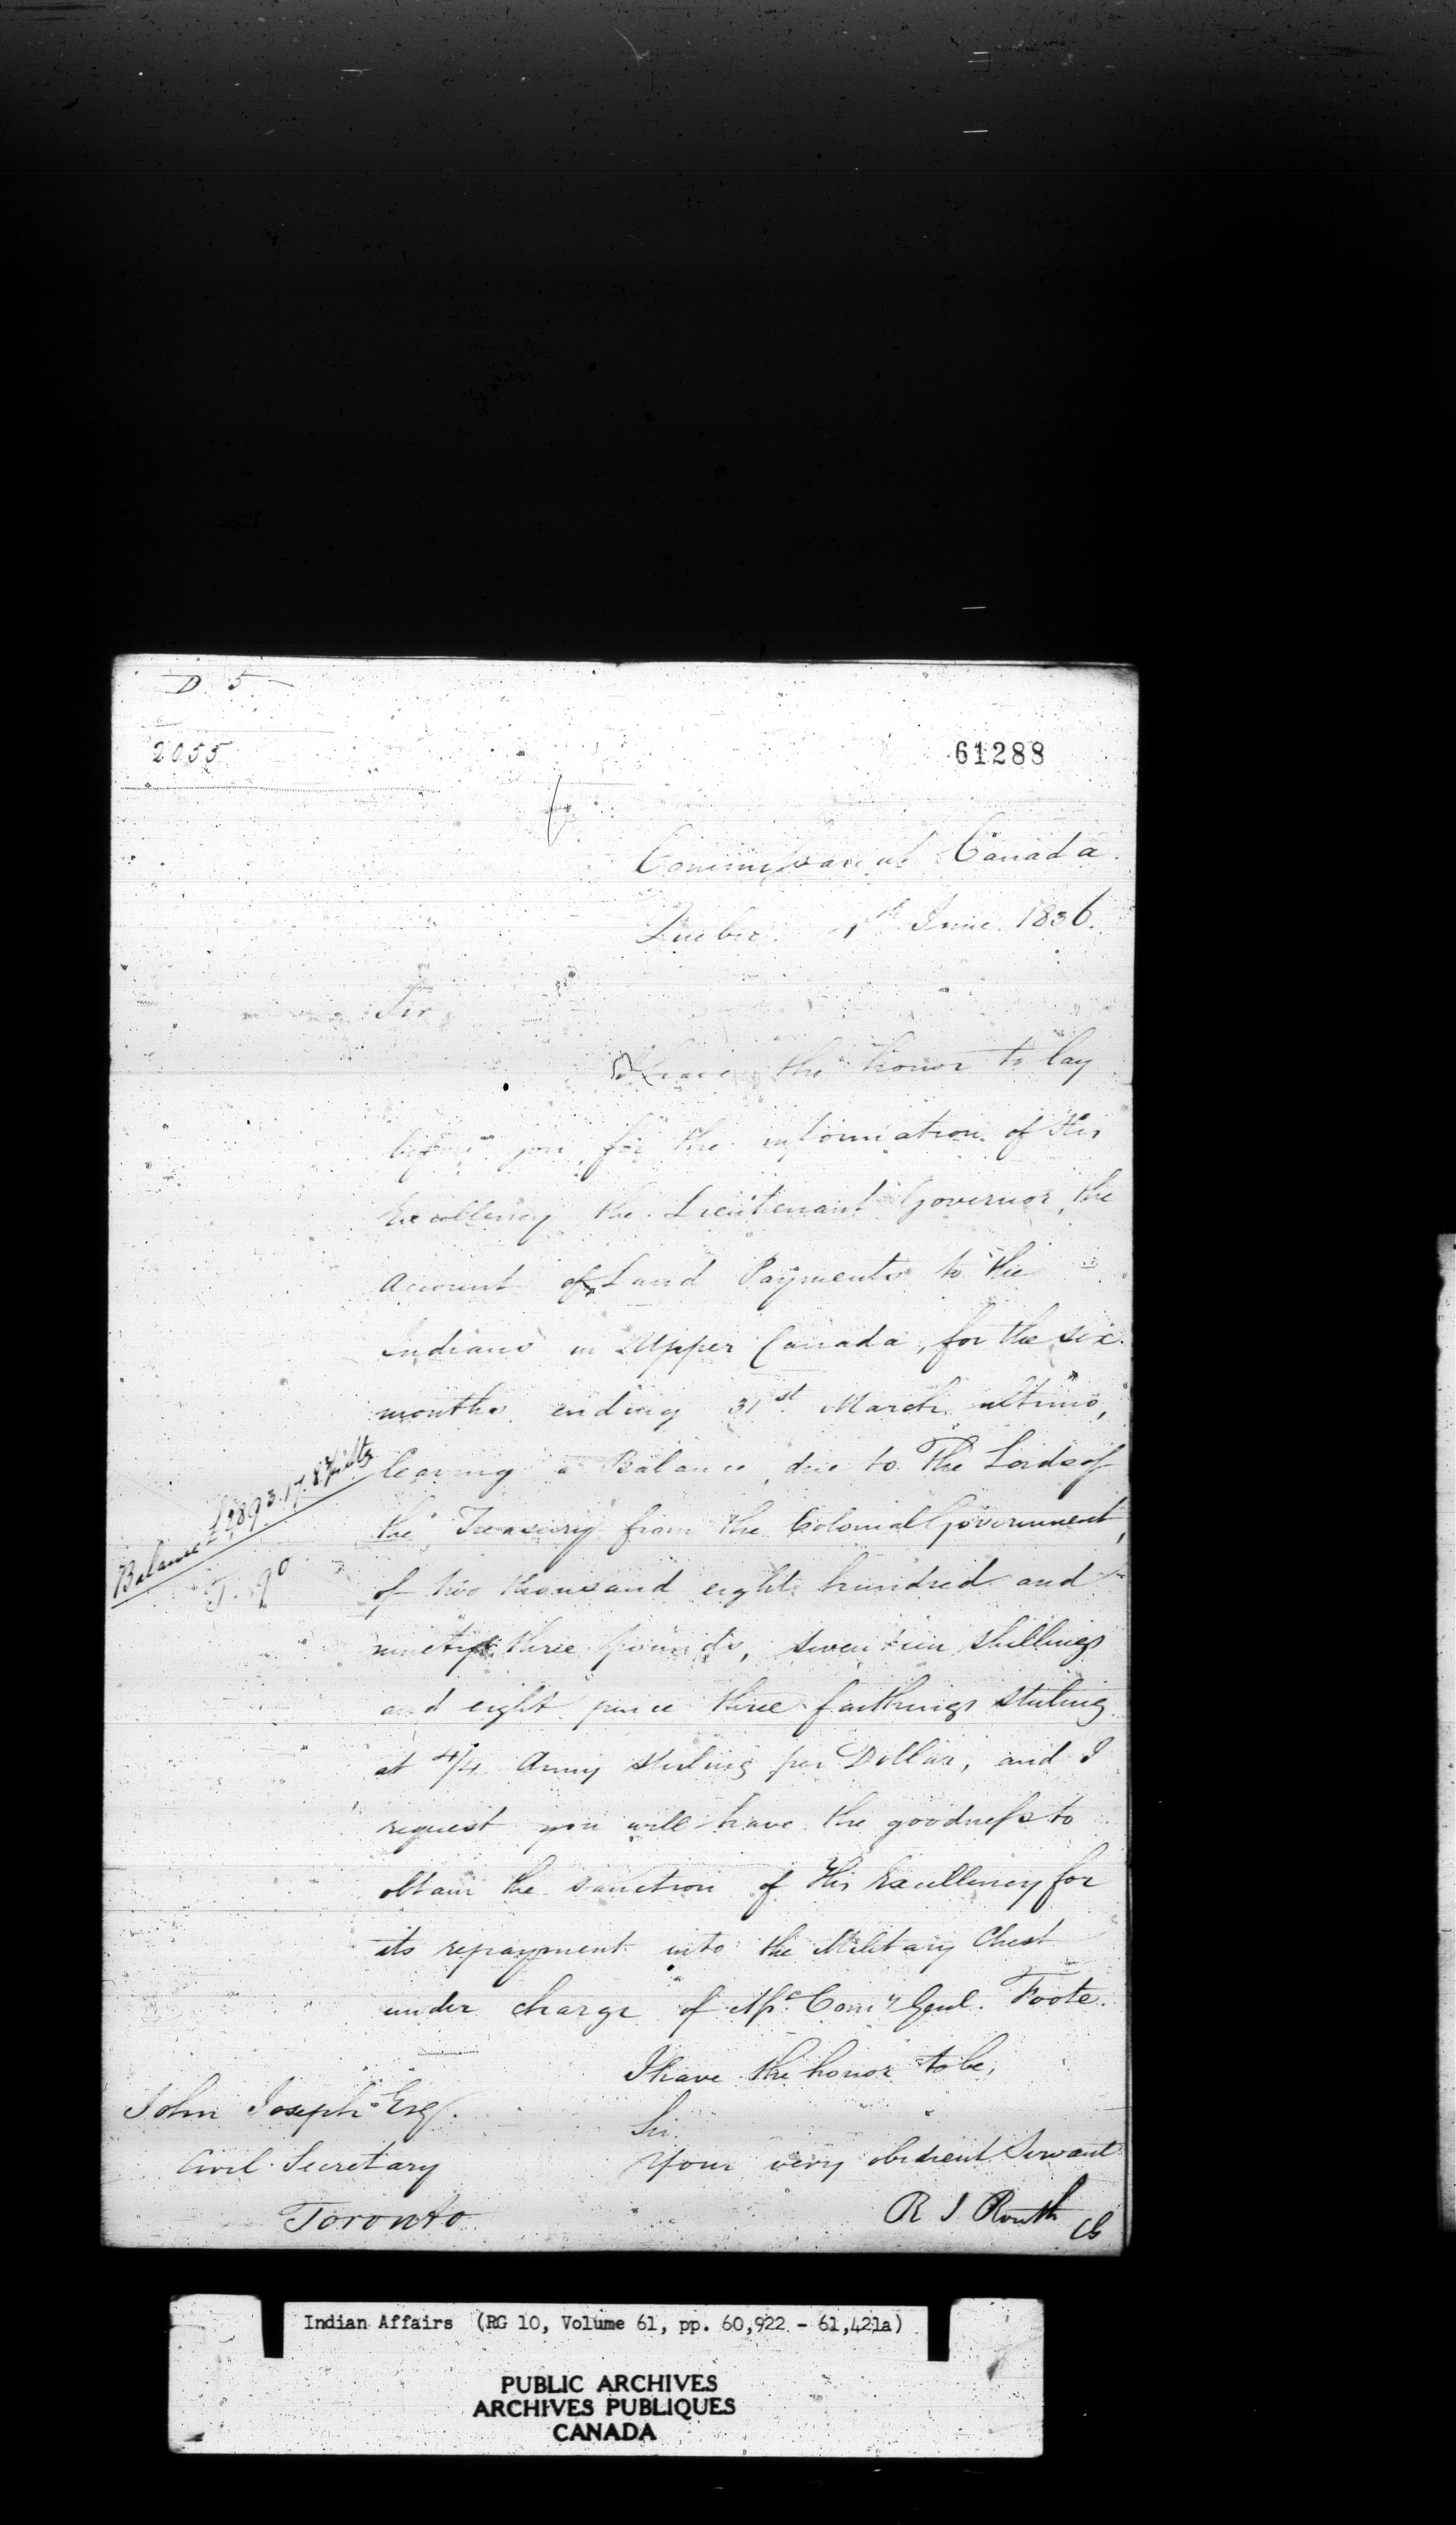 D 5
2055
61288
Commissariat Canada.
Quebec 1st June 1836.
Sir
I have the honor to lay
before you, for the information of His
Excellency the Lieutenant Governor, the
Account of Land Payments to the
Indians in Upper Canada, for the six
months ending 31st March ultimo,
leaving a Balance, due to The Lords of
the Treasury from the Colonial Government,
Balance £2893.17.8¾
of two thousand eight hundred and
ninety three pounds, seventeen shillings
and eight pence three farthings sterling
at 4/4 Army sterling per Dollar, and I
request you will have the goodness to
obtain the sanction of His Excellency for
its repayment into the Military Chest
under charge of Asst. Comy Genl. Foote.
I have the honor to be,
Sir.
Your very obedient Servant
R I Routh
CG
John Joseph Esq.
Civil Secretary
Toronto
Indian Affairs (RG 10, Volume 61, pp. 60,922 - 61,421a)
PUBLIC ARCHIVES
ARCHIVES PUBLIQUES
CANADA